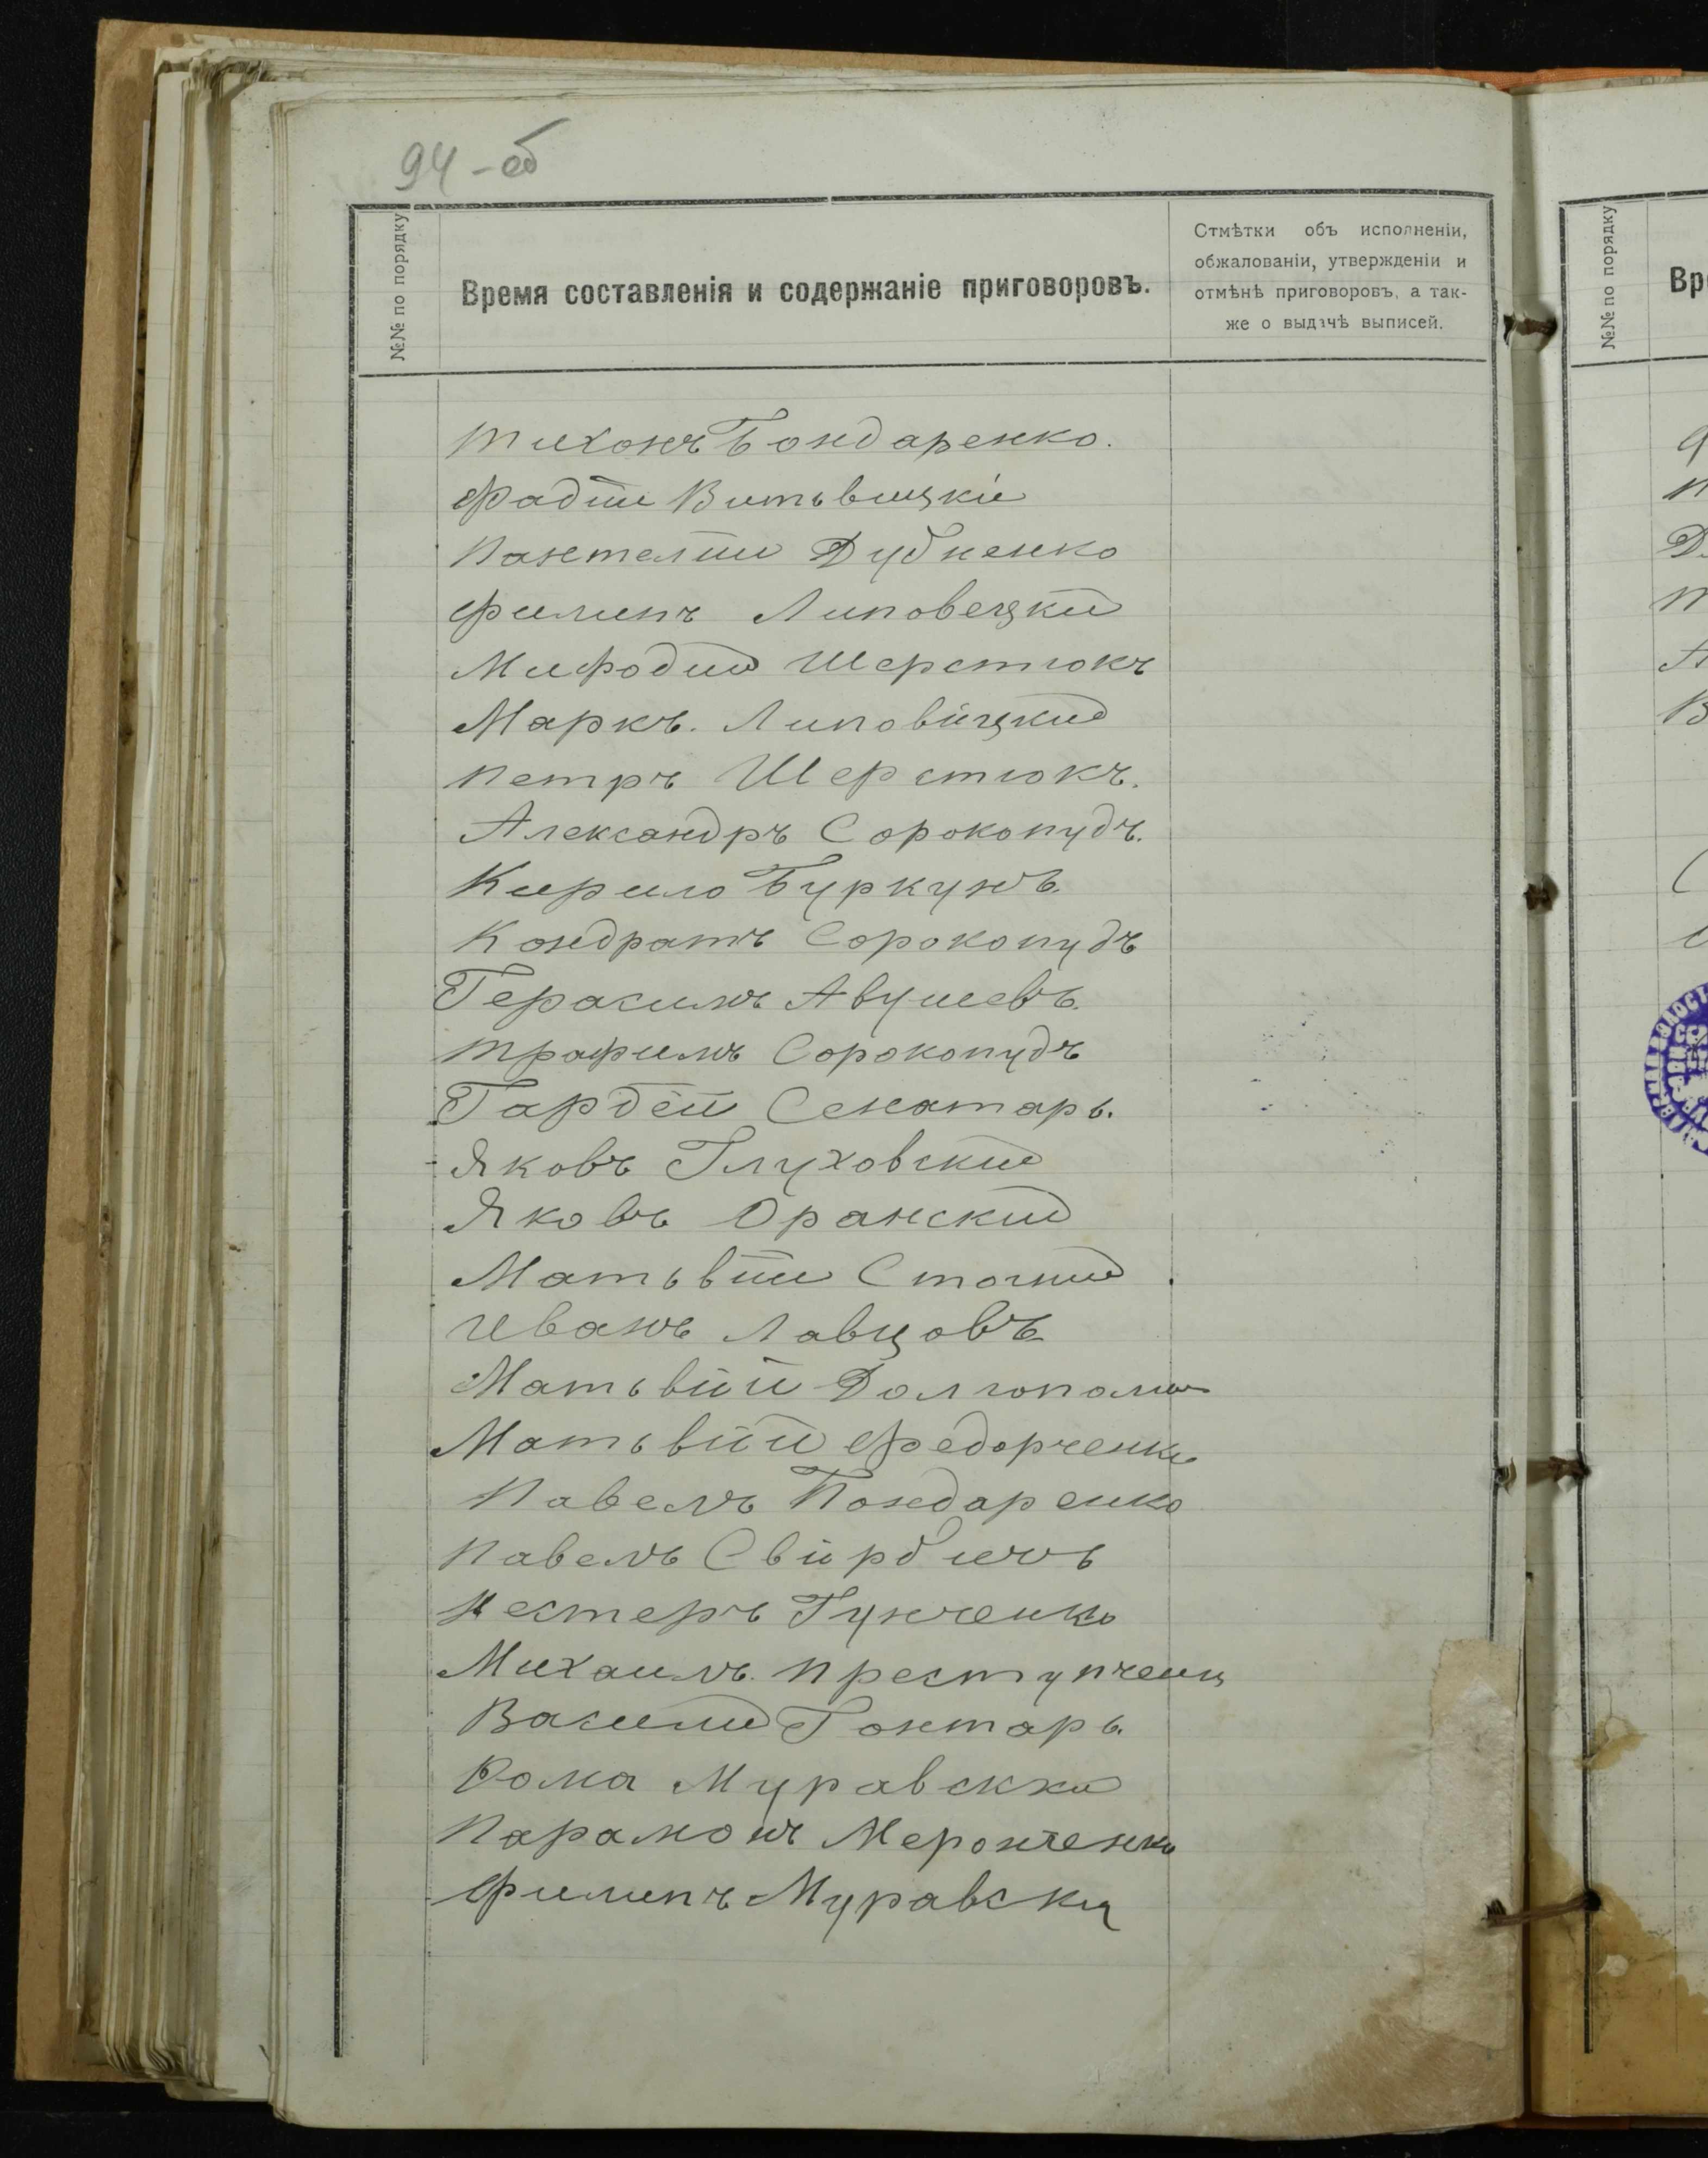 94-об
№№ по порядку
Время составленія и содержаніе приговоровъ.
Отмѣтки объ исполненіи,
обжалованіи, утвержденіи и
отмѣнѣ приговоровъ, а так-
же о выдачѣ выписей.
Тихонъ Бондаренко.
Фадій Витьвицкій
Пантелій Дубненко
Филипъ Липовецкій
Мифодий Шерстюкъ
Маркъ. Липовицкий
Петръ Шерстюкъ.
Александръ Сорокопудъ.
Кирило Буркунъ.
Кондратъ Сорокопудъ
Герасимъ Авушевъ.
Трафимъ Сорокопудъ
Гардей Сенатаръ.
Яковъ Глуховский
Яковъ Оранский
Матьвій Стогний
Иванъ Лавцовъ
Матьвій Долгополи
Матьвій Федорченко
Павелъ Пондаренко
Павелъ Свирбинъ
Нестеръ Гунченко
Михаилъ. Преступченц
Василий Гонтарь.
Фома Муравскки
Парамонъ Меронченко
Филипъ Муравски
№№ по порядку